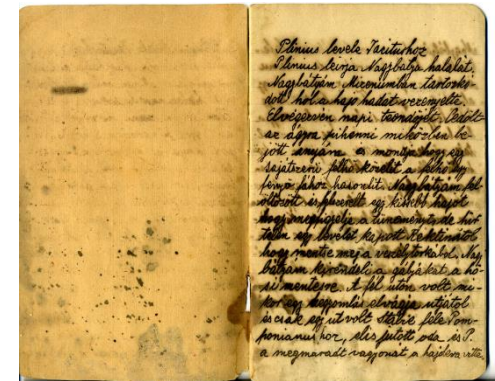 Plinius levele Tacitushoz
Plinius leirja Nagybátja halálát.
Nagybátyám Misenumban tartózko-
dott hol a hajó hadat vezényelte.
Elvégezvén napi teendőjét ledőlt
az ágyra pihenni miközben be-
jött anyám és mondja hogy egy
sajátszerű felhő közelít a felhő egy
fenyő fához hasonlít. Nagybátyám fel-
öltözött és felszerelt egy kisebb hajót
hogy megfigyelje a tüneményt, de hir-
telen egy levelet kapott
hogy mentse meg a veszélytorkából. Nagy
bátyám kirendeli a gályákat a
mentésre. A fél úton volt mi-
kor egy hegyomlás elvágja utjától
és csak egy út volt Stabie féle Pom-
ponianushoz, el is jutott oda és P.
a megmaradt vagyonát a hajókra vitte.